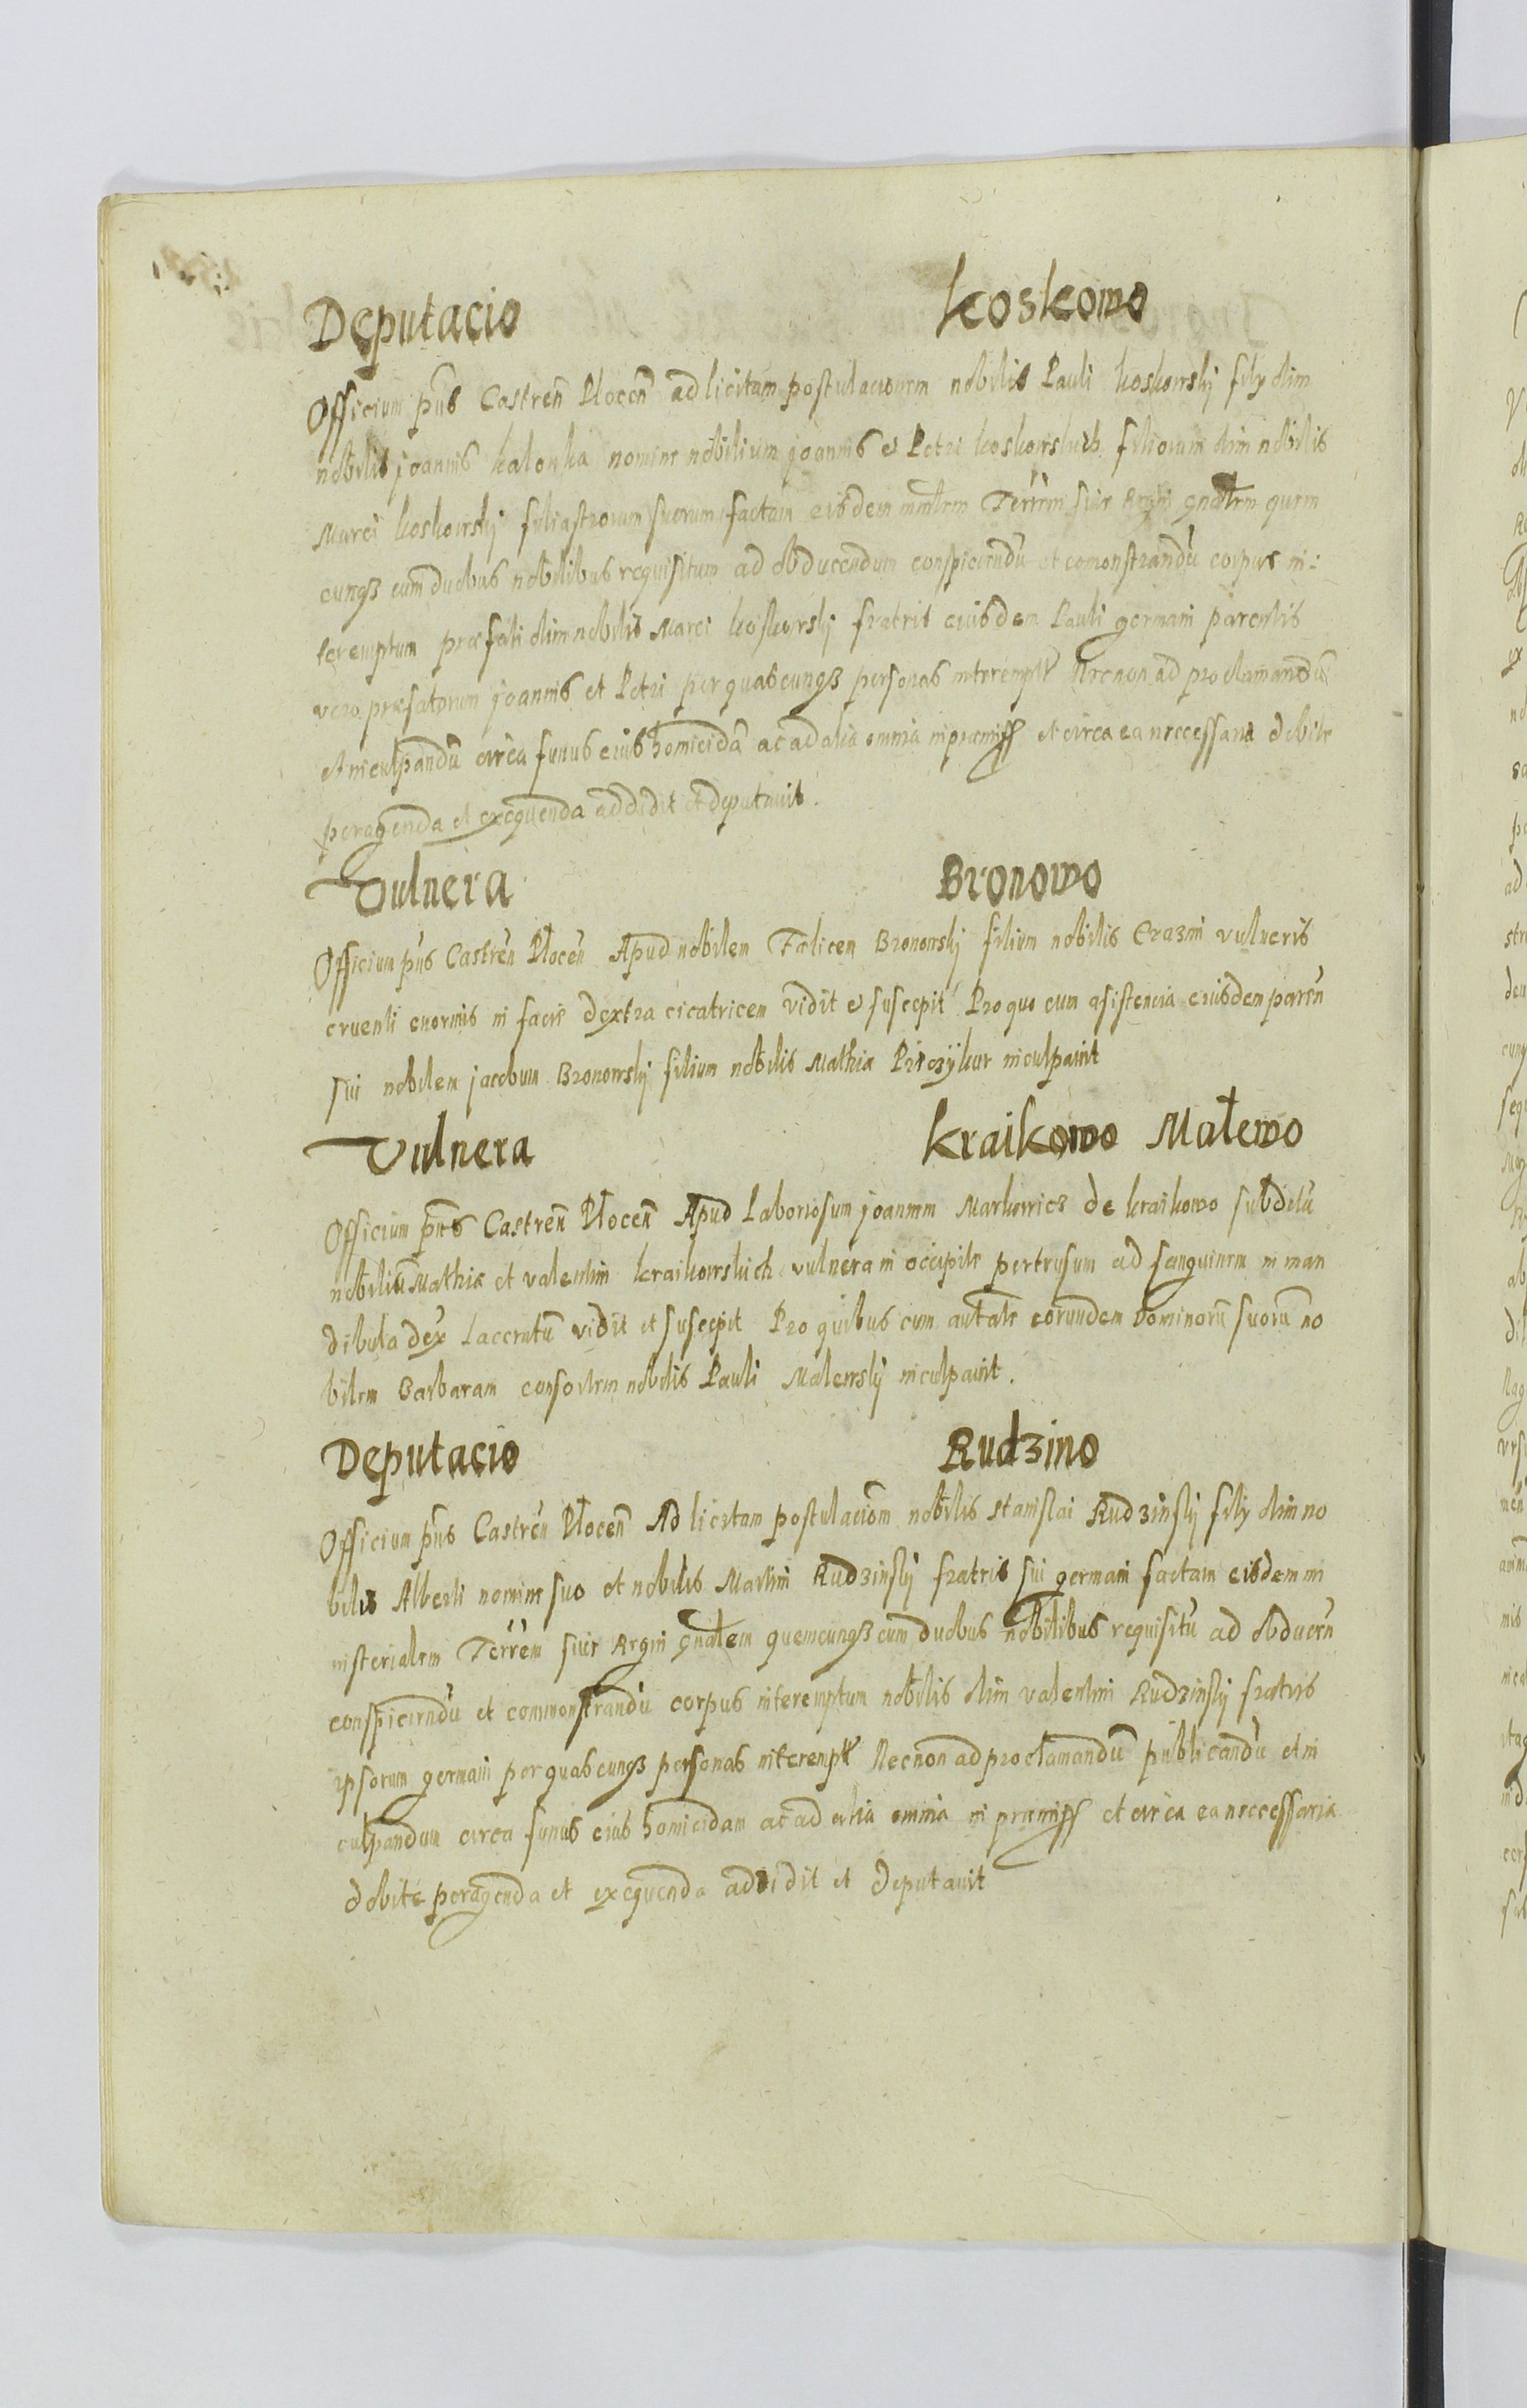 Deputacio Koskowo
Officium pñs Castren̄ Płocen̄ ad licitam postulacionem nobilis Pauli Koskowskj filij olim
nobilis joannis Kalonka nomine nobilium joannis et Petri Koskowskich filiorum olim nobilis
Marci Koskowskj filiastrorum suorum factam eisdem Terrem̄ siue Regni gnālem quem
cunqȝ cum duobus nobilibus requisitum ad obducendum conspiciendū et comonstrandū corpus in:
teremptum præfati olim nobilis Marci Koskowskj fratris eiusdem Pauli germani parentis
vero præfatorum joannis et Petri per quascunqȝ personas interempt̄ Necnon ad proclamandū
et inculpandū circa funus eius homicidā ac ad alia omnia in præmiss et circa ea necessaria debite
peragenda et exequenda addidit et deputauit.
Vulnera Bronowo
Officium pñs Castren̄ Płocen̄ Apud nobilem Fœlicem Bronowskj filium nobilis Erazmi vulneris
cruenti enormis in facie dextra cicatricem vidit et suscepit Pro quo cum asistencia eiusdem paren̄
sui nobilem jacobum Bronowskj filium nobilis Mathiæ inculpauit
Vulnera Kraikowo Malewo
Officium pñs Castren̄ Płocen̄ Apud Laboriosum joannem Markowicz de Kraikowo subditū
nobiliū Mathiæ et valentini Kraikowskich vulnera in occipite pertusum ad sanguinem in man
dibula dex laceratū vidit et suscepit Pro quibus cum autāte eorundem Dominorū suorū no
bilem Barbaram consortem nobilis Pauli Malewskj inculpauit.
Deputacio Rudzino
Officium pñs Castren̄ Płocen̄ Ad licitam postulaciōm nobilis Stanislai Rudzinskj filij olim no
bilis Alberti nomine suo et nobilis Martini Rudzinskj fratris sui germani factam eisdem mi
nisterialem Terrem̄ siue Regni gnālem quemcunqȝ cum duobus nobilibus requisitū ad obducen̄
conspiciendū et commonstrandū corpus interemptum nobilis olim valentini Rudzinskj fratris
ipsorum germani per quascunqȝ personas interempt̄ Necnon ad proclamandū publicandū et in
culpandum circa funus eius homicidam ac ad alia omnia in præmiss et circa ea necessaria
debite peragenda et exequenda addidit et deputauit